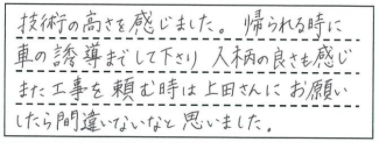 技術の高さを感じました。帰られる時に
車の誘導までして下さり 人柄の良さも感じ
また工事を頼む時は上田さんにお願い
したら間違いないなと思いました。